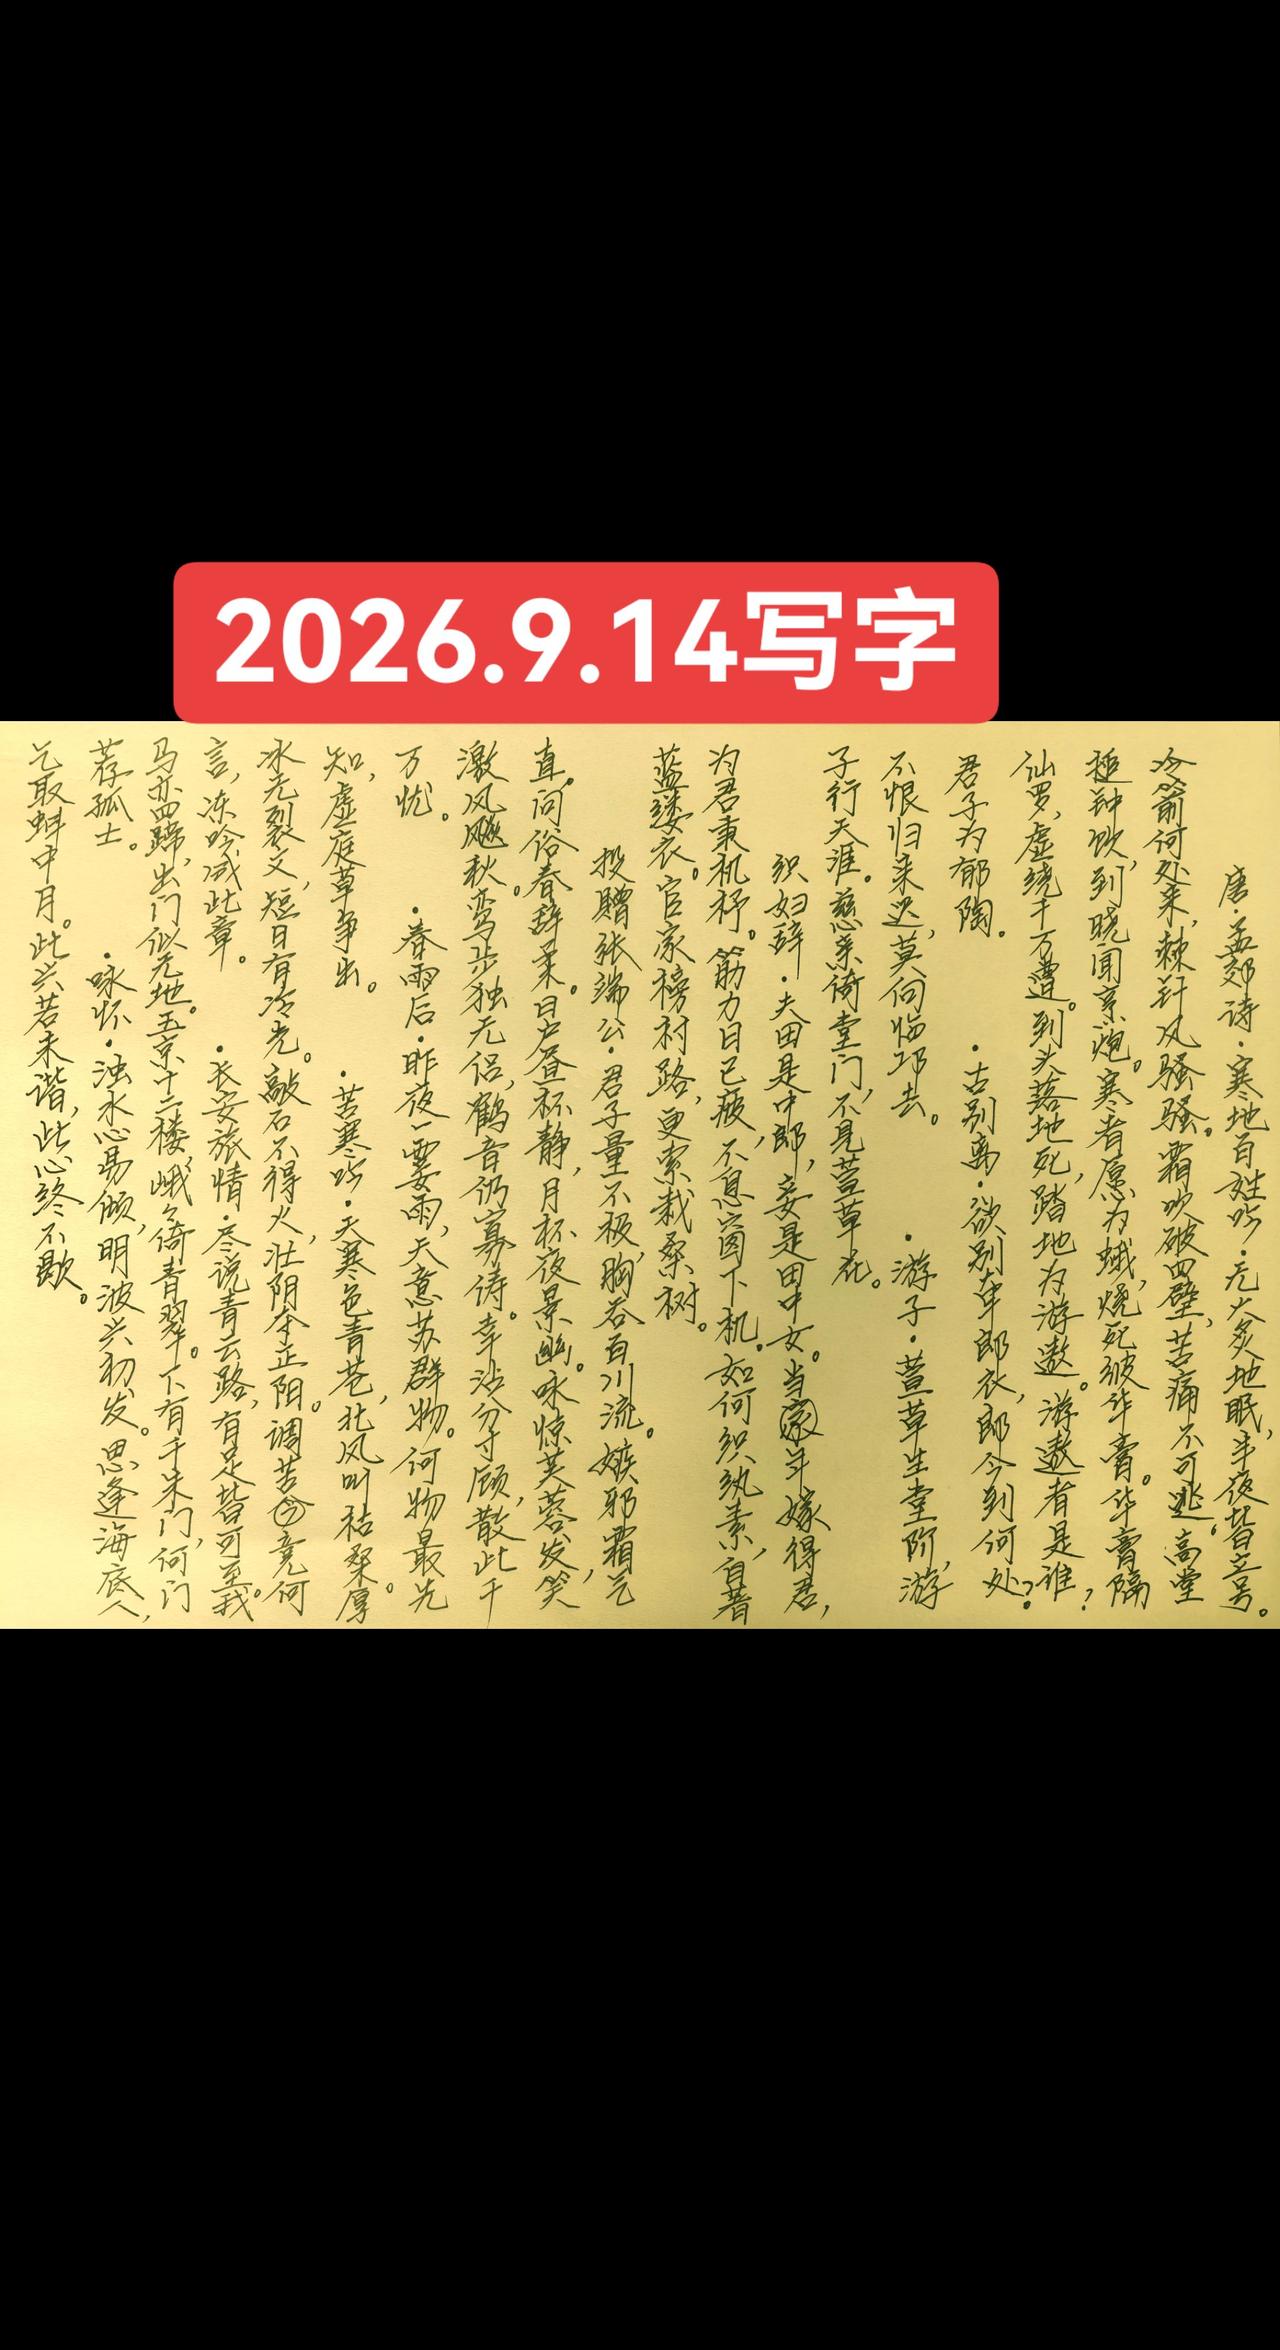 2026.9.14写字
唐·孟郊诗·寒地百姓吟·无火炙地眠，半夜皆立号。
冷箭何处来，棘针风骚骚。霜吹破四壁，苦痛不可逃。高堂
搥钟饮，到晓闻烹炮。寒者愿为蛾，烧死彼华膏。华膏隔
仙罗，虚绕千万遭。到头落地死，踏地为游遨。游遨者是谁？
君子为郁陶。　·古别离·欲别牵郎衣，郎今到何处？
不恨归来迟，莫向临邛去。　·游子·萱草生堂阶，游
子行天涯。慈亲倚堂门，不见萱草花。
织妇辞·夫田是中郎，妾是田中女。当家年嫁得君，
为君秉机杼。筋力日已疲，不息窗下机。如何织纨素，自著
蓝缕衣。官家榜村路，更索栽桑树。
投赠张端公·君子量不极，胸吞百川流。嫉邪霜气
直。问俗春辞柔。日户昼杯静，月杯夜景幽。咏惊芙蓉发，笑
激风飚秋。鸾步独无侣，鹤音仍寡俦。幸沾分寸顾，散此千
万忧。　·春雨后·昨夜一霎雨，天意苏群物。何物最先
知，虚庭草争出。　·苦寒吟·天寒色青苍，北风叫枯桑。厚
冰无裂文，短日有冷光。敲石不得火，壮阴夺正阳。调苦竟何
言，冻吟成此章。　·长安旅情·尽说青云路，有足皆可至。我
马亦四蹄，出门似无地。玉京十二楼，峨々倚青翠。下有千朱门，何门
荐孤士。　·咏怀·浊水心易倾，明波兴初发。思逢海底人，
乞取蚌中月。此兴若未谐，此心终不歇。